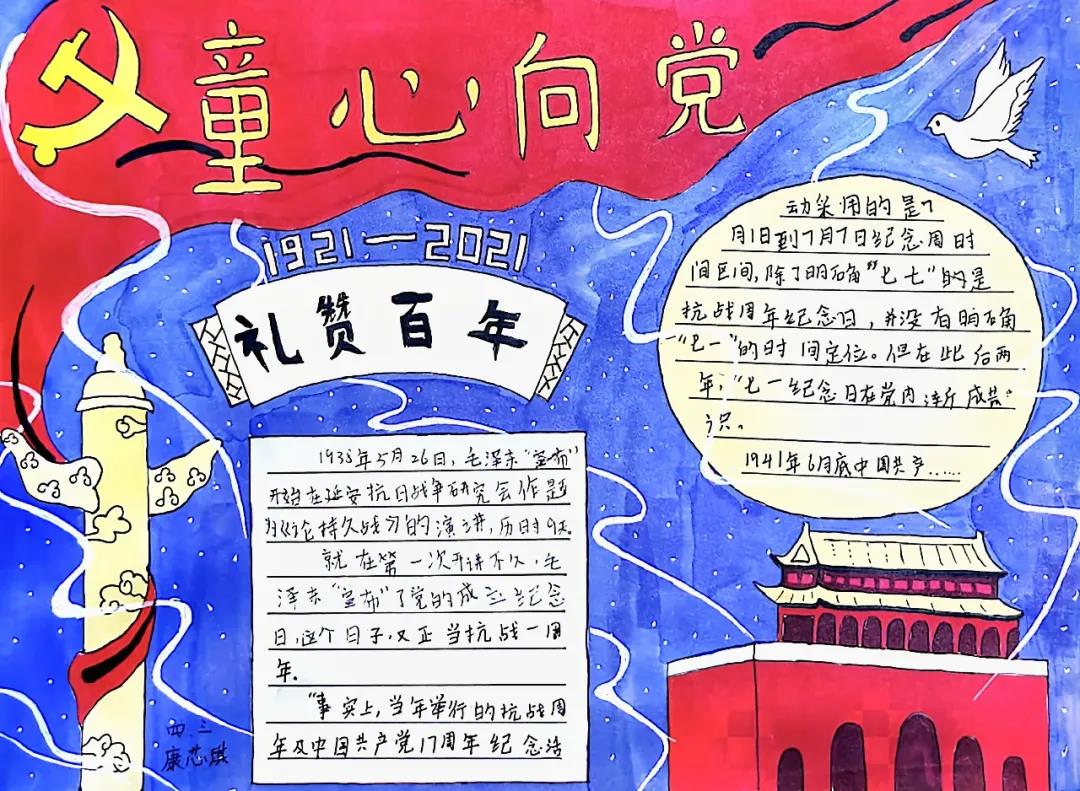 童心向党
1921—2021
礼赞百年
1938年5月26日，毛泽东“宣布”
开始在延安抗日战争研究会作题
为《论持久战》的演讲，历时9天
就在第一次开讲不久，毛
泽东“宣布”了党的成立纪念
日，这个日子，又正当抗战一周
年。
“事实上，当年举行的抗战周
年及中国共产党17周年纪念活
动采用的是7
月1日到7月7日纪念周时
间区间，除了明确“七七”的是
抗战周年纪念日，并没有明确
“七一”的时间定位。但在此后两
年，“七一纪念日在党内渐成共
识。
1941年6月底中国共产......
四.三
康芯琪